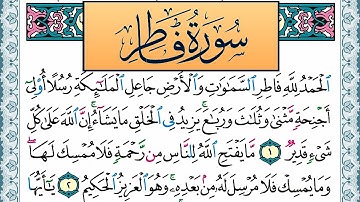 سُورَةُ فَاطِرٍ
ٱلۡحَمۡدُ لِلَّهِ فَاطِرِ ٱلسَّمَٰوَٰتِ وَٱلۡأَرۡضِ جَاعِلِ ٱلۡمَلَٰٓئِكَةِ رُسُلًا أُو۟لِيٓ
أَجۡنِحَةٖ مَّثۡنَىٰ وَثُلَٰثَ وَرُبَٰعَۚ يَزِيدُ فِي ٱلۡخَلۡقِ مَا يَشَآءُۚ إِنَّ ٱللَّهَ عَلَىٰ كُلِّ
شَيۡءٖ قَدِيرٞ ١ مَّا يَفۡتَحِ ٱللَّهُ لِلنَّاسِ مِن رَّحۡمَةٖ فَلَا مُمۡسِكَ لَهَاۖ
وَمَا يُمۡسِكۡ فَلَا مُرۡسِلَ لَهُۥ مِنۢ بَعۡدِهِۦۚ وَهُوَ ٱلۡعَزِيزُ ٱلۡحَكِيمُ ٢ يَٰٓأَيُّهَا